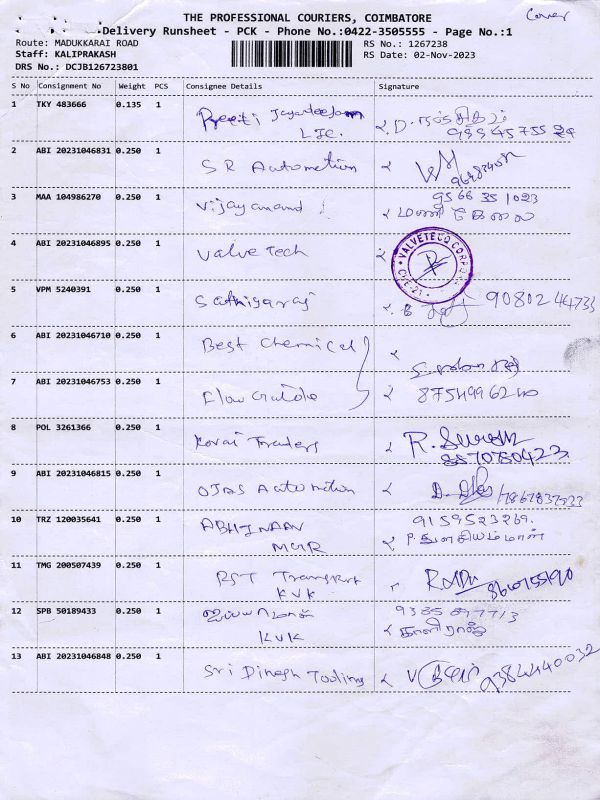 Cover
THE PROFESSIONAL COURIERS, COIMBATORE
Delivery Runsheet - PCK - Phone No.:0422-3505555 - Page No.:1
Route: MADUKKARAI ROAD
RS No.: 1267238
Staff: KALIPRAKASH
RS Date: 02-Nov-2023
DRS No.: DCJB126723801
S No Consignment No Weight PCS Consignee Details Signature
1 TKY 483666 0.135 1 Preeti
LIC.
2 ABI 20231046831 0.250 1 SR Automation
3 MAA 104986270 0.250 1 Vijayanand
9566351023
மணி
4 ABI 20231046895 0.250 1 Valve Tech
VALVETECO CORP
CBE-21
5 VPM 5240391 0.250 1 Sathiyaraj
9080244733
6 ABI 20231046710 0.250 1 Best Chemical
7 ABI 20231046753 0.250 1 Flow Guide
8754996240
8 POL 3261366 0.250 1 Kovai Traders R. Suresh
8870750423
9 ABI 20231046815 0.250 1 OJAS Automation
7867837223
10 TRZ 120035641 0.250 1 ABHINAAV 9159523269.
MGR P. துளசியம்மாள்
11 TMG 200507439 0.250 1 RST Transport
KVK
12 SPB 50189433 0.250 1 ஐயப்பா
9385897713
KVK காளிராஜ்
13 ABI 20231046848 0.250 1 Sri Dinesh Tooling 9384440032